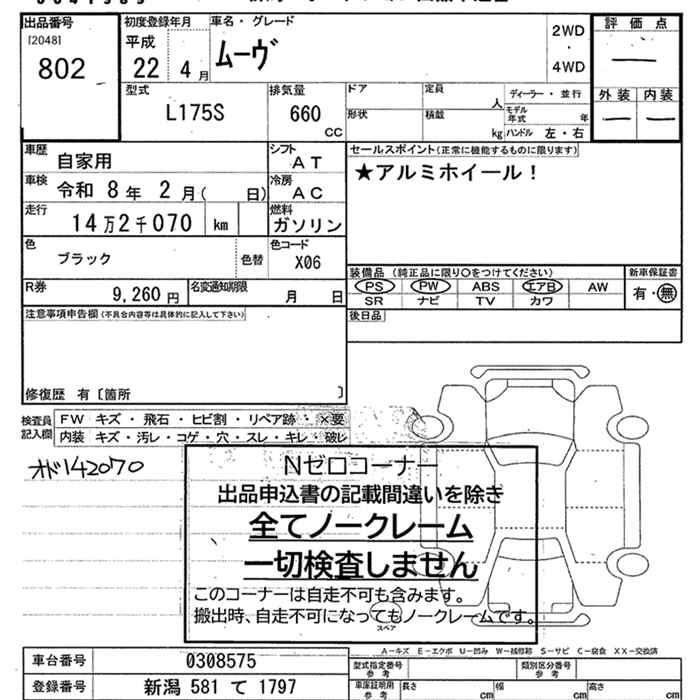 出品番号
[2048]
802
初度登録年月
平成
22 4 月
車名・グレード
ムーヴ
2WD
・
4WD
評価点
—
外装 内装
— —
型式
L175S
排気量
660
CC
ドア
定員
人
ディーラー・並行
形状
積載
kg
モデル
年式
年
ハンドル 左・右
車歴
自家用
シフト
AT
車検
令和 8年 2月( 日)
冷房
AC
走行
14万2千070 km
燃料
ガソリン
色
ブラック
色替
色コード
X06
R券
9,260 円
名変通知期限
月 日
セールスポイント(正常に機能するものに限ります)
★アルミホイール!
装備品(純正品に限り〇をつけてください)
新車保証書
PS PW ABS エアB AW
SR ナビ TV カワ
有・無
注意事項申告欄(不具合内容等は具体的に記入して下さい)
後日品
修復歴 有〔箇所 〕
検査員
記入欄
FW キズ・飛石・ヒビ割・リペア跡・×要
内装 キズ・汚レ・コゲ・穴・スレ・キレ・破レ
オド142070
Nゼロコーナー
出品申込書の記載間違いを除き
全てノークレーム
一切検査しません
このコーナーは自走不可も含みます。
搬出時、自走不可になってもノークレームです。
スペア
A-キズ E-エクボ U-凹み W-補修跡 S-サビ C-腐食 XX-交換済
車台番号
0308575
登録番号
新潟 581 て 1797
型式指定番号
参考
類別区分番号
参考
車庫証明用
参考
長さ
cm
幅
cm
高さ
cm